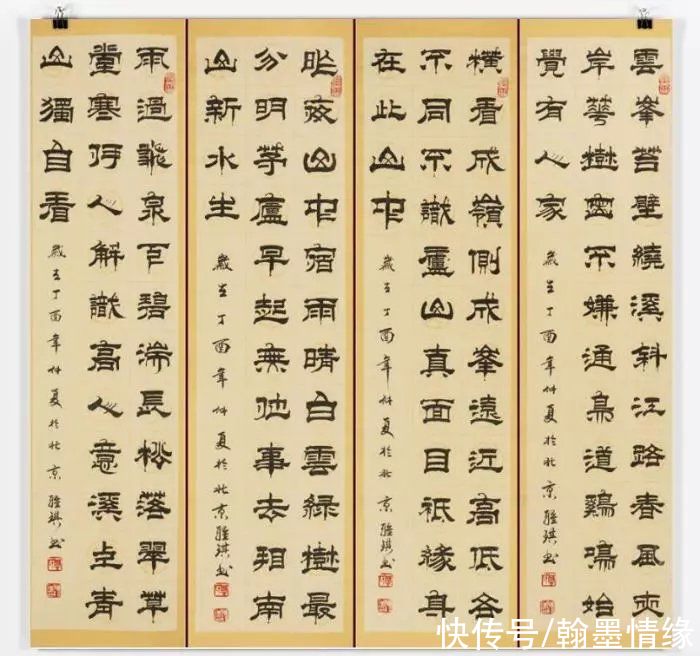 雲峯苔壁繞溪斜江路春風夾
岸華樹密不嫌通鳥道鷄鳴始
覺有人家
歲在丁酉年仲夏於北京
橫看成嶺側成峯遠近高低各
不同不識廬山真面目祇緣身
在此山中
歲在丁酉年仲夏於北京
昨夜山中宿雨晴白雲綠樹最
分明茅廬早起無他事去相南
山新水生
歲在丁酉年仲夏於北京
雨過飛泉下碧湍長松落翠草
堂寒何人解識高人意溪上青
山獨自看
歲在丁酉年仲夏於北京
快传号/翰墨情缘